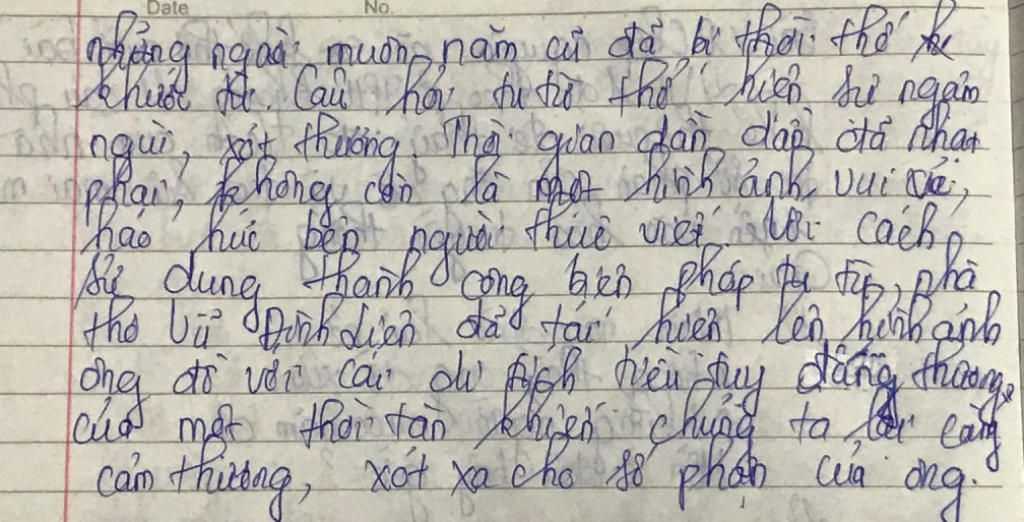 Date No.
những người muôn năm cũ đã bị thời thế
khước từ. Câu hỏi tu từ thể hiện sự ngậm
ngùi, xót thương. Thời gian dần dần đã nhạt
phai, không còn là một hình ảnh vui vẻ,
háo hức bên người thuê viết. Với cách
sử dụng thành công biện pháp tu từ, nhà
thơ Vũ Đình Liên đã tái hiện lên hình ảnh
ông đồ với cái di tích tiều tụy đáng thương
của một thời tàn khiến chúng ta lại càng
cảm thương, xót xa cho số phận của ông.